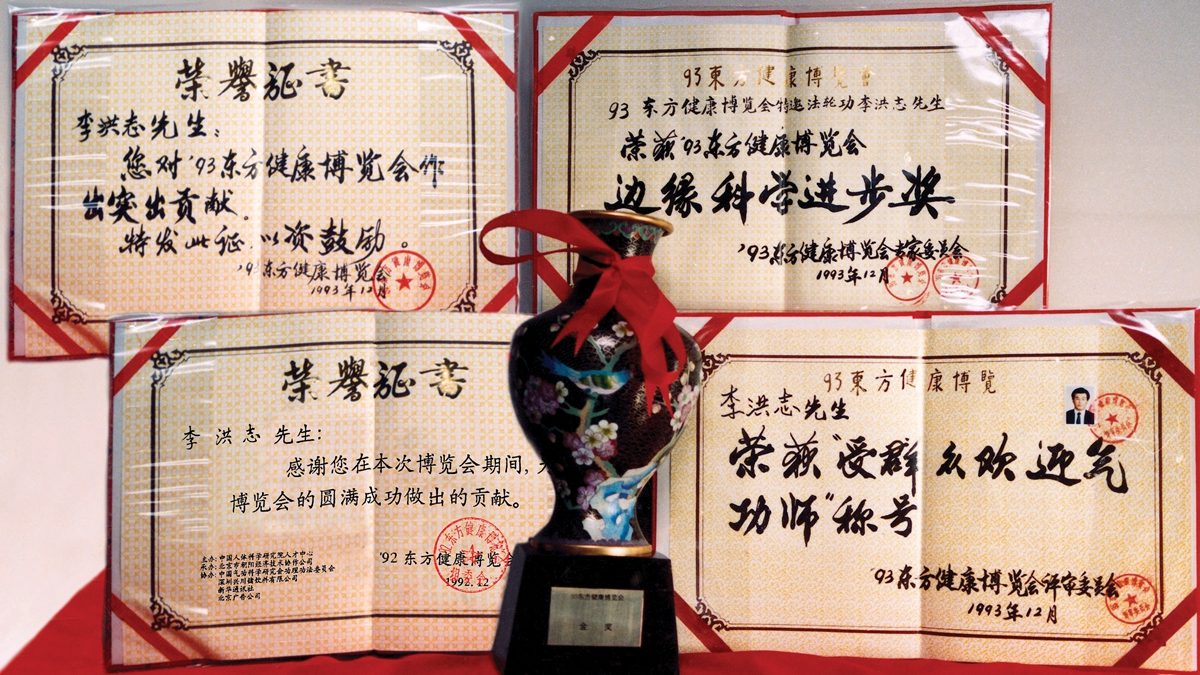 荣誉证书
李洪志先生：
您对'93东方健康博览会作
出突出贡献。
特发此证，以资鼓励。
'93东方健康博览会
1993年12月
93東方健康博覽會
93 东方健康博览会特邀法轮功李洪志先生
荣获'93东方健康博览会
边缘科学进步奖
'93东方健康博览会专家委员会
1993年12月
荣誉证书
李洪志 先生：
感谢您在本次博览会期间,
博览会的圆满成功做出的贡献。
主办：中国人体科学研究院人才中心
承办：北京市朝阳经济技术协作公司
协办：中国气功科学研究会功理功法委员会
深圳兴川镭饮料有限公司
新华通讯社
北京广告公司
'92 东方健康博览会
1992.12
93東方健康博覽
李洪志先生
荣获"受群众欢迎气
功师"称号
'93东方健康博览会评审委员会
1993年12月
93东方健康博览会
金奖